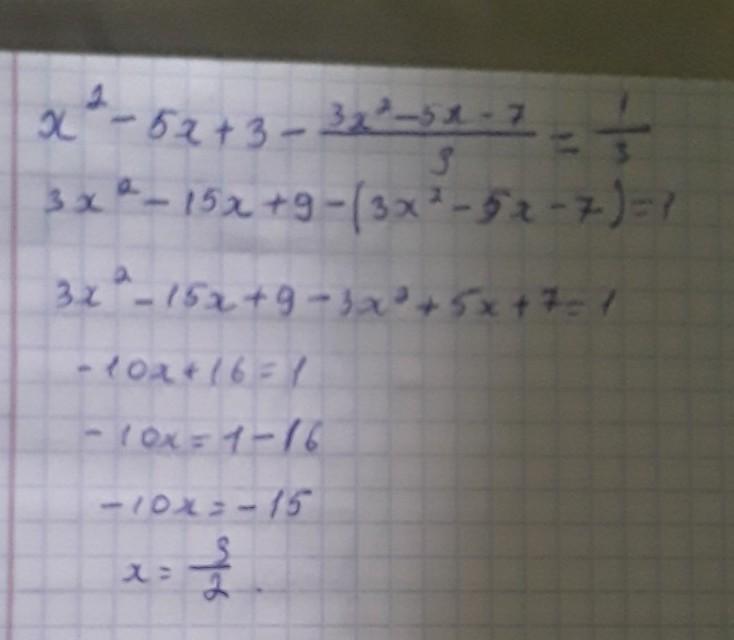 x² - 5x + 3 - (3x² - 5x - 7)/3 = 1/3
3x² - 15x + 9 - (3x² - 5x - 7) = 1
3x² - 15x + 9 - 3x² + 5x + 7 = 1
-10x + 16 = 1
-10x = 1 - 16
-10x = -15
x = 3/2.